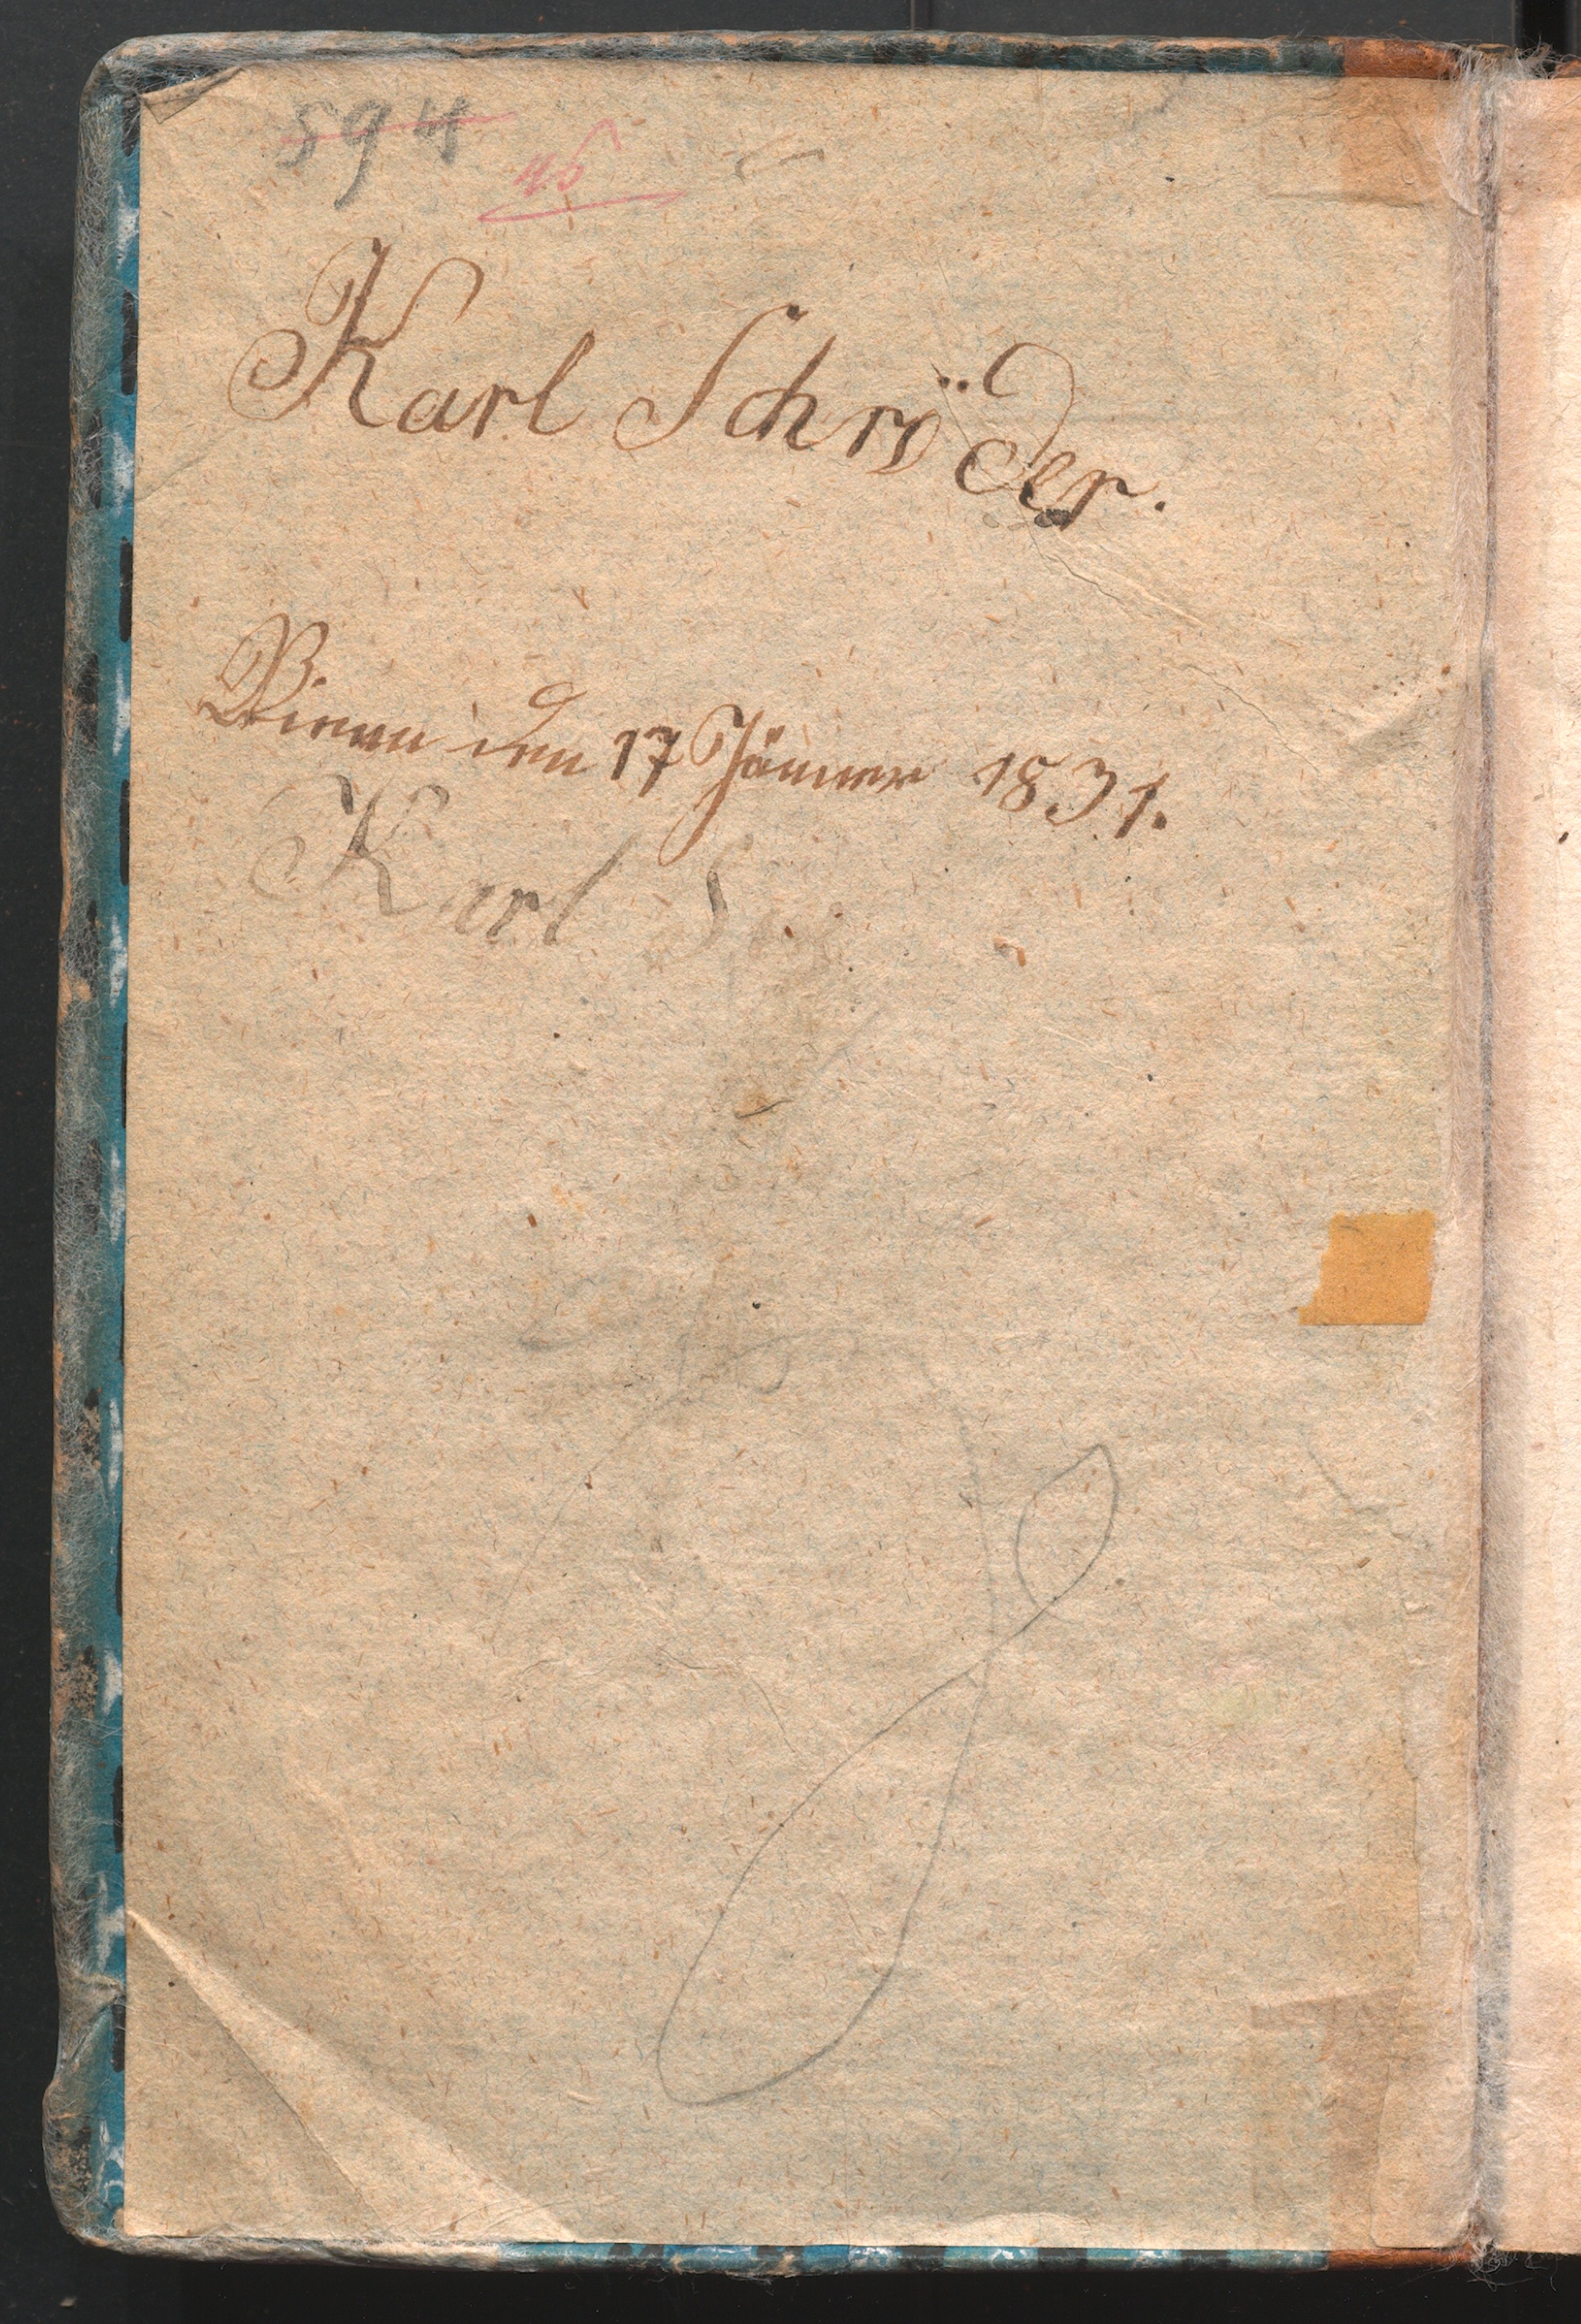 594
46
Karl Schröder.
Wienn den 17 Jänner 1831.
Karl S